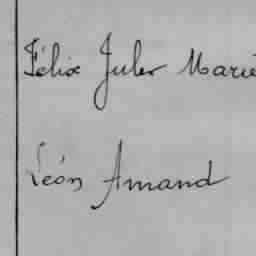 Félix Jules Marie
Léon Amand